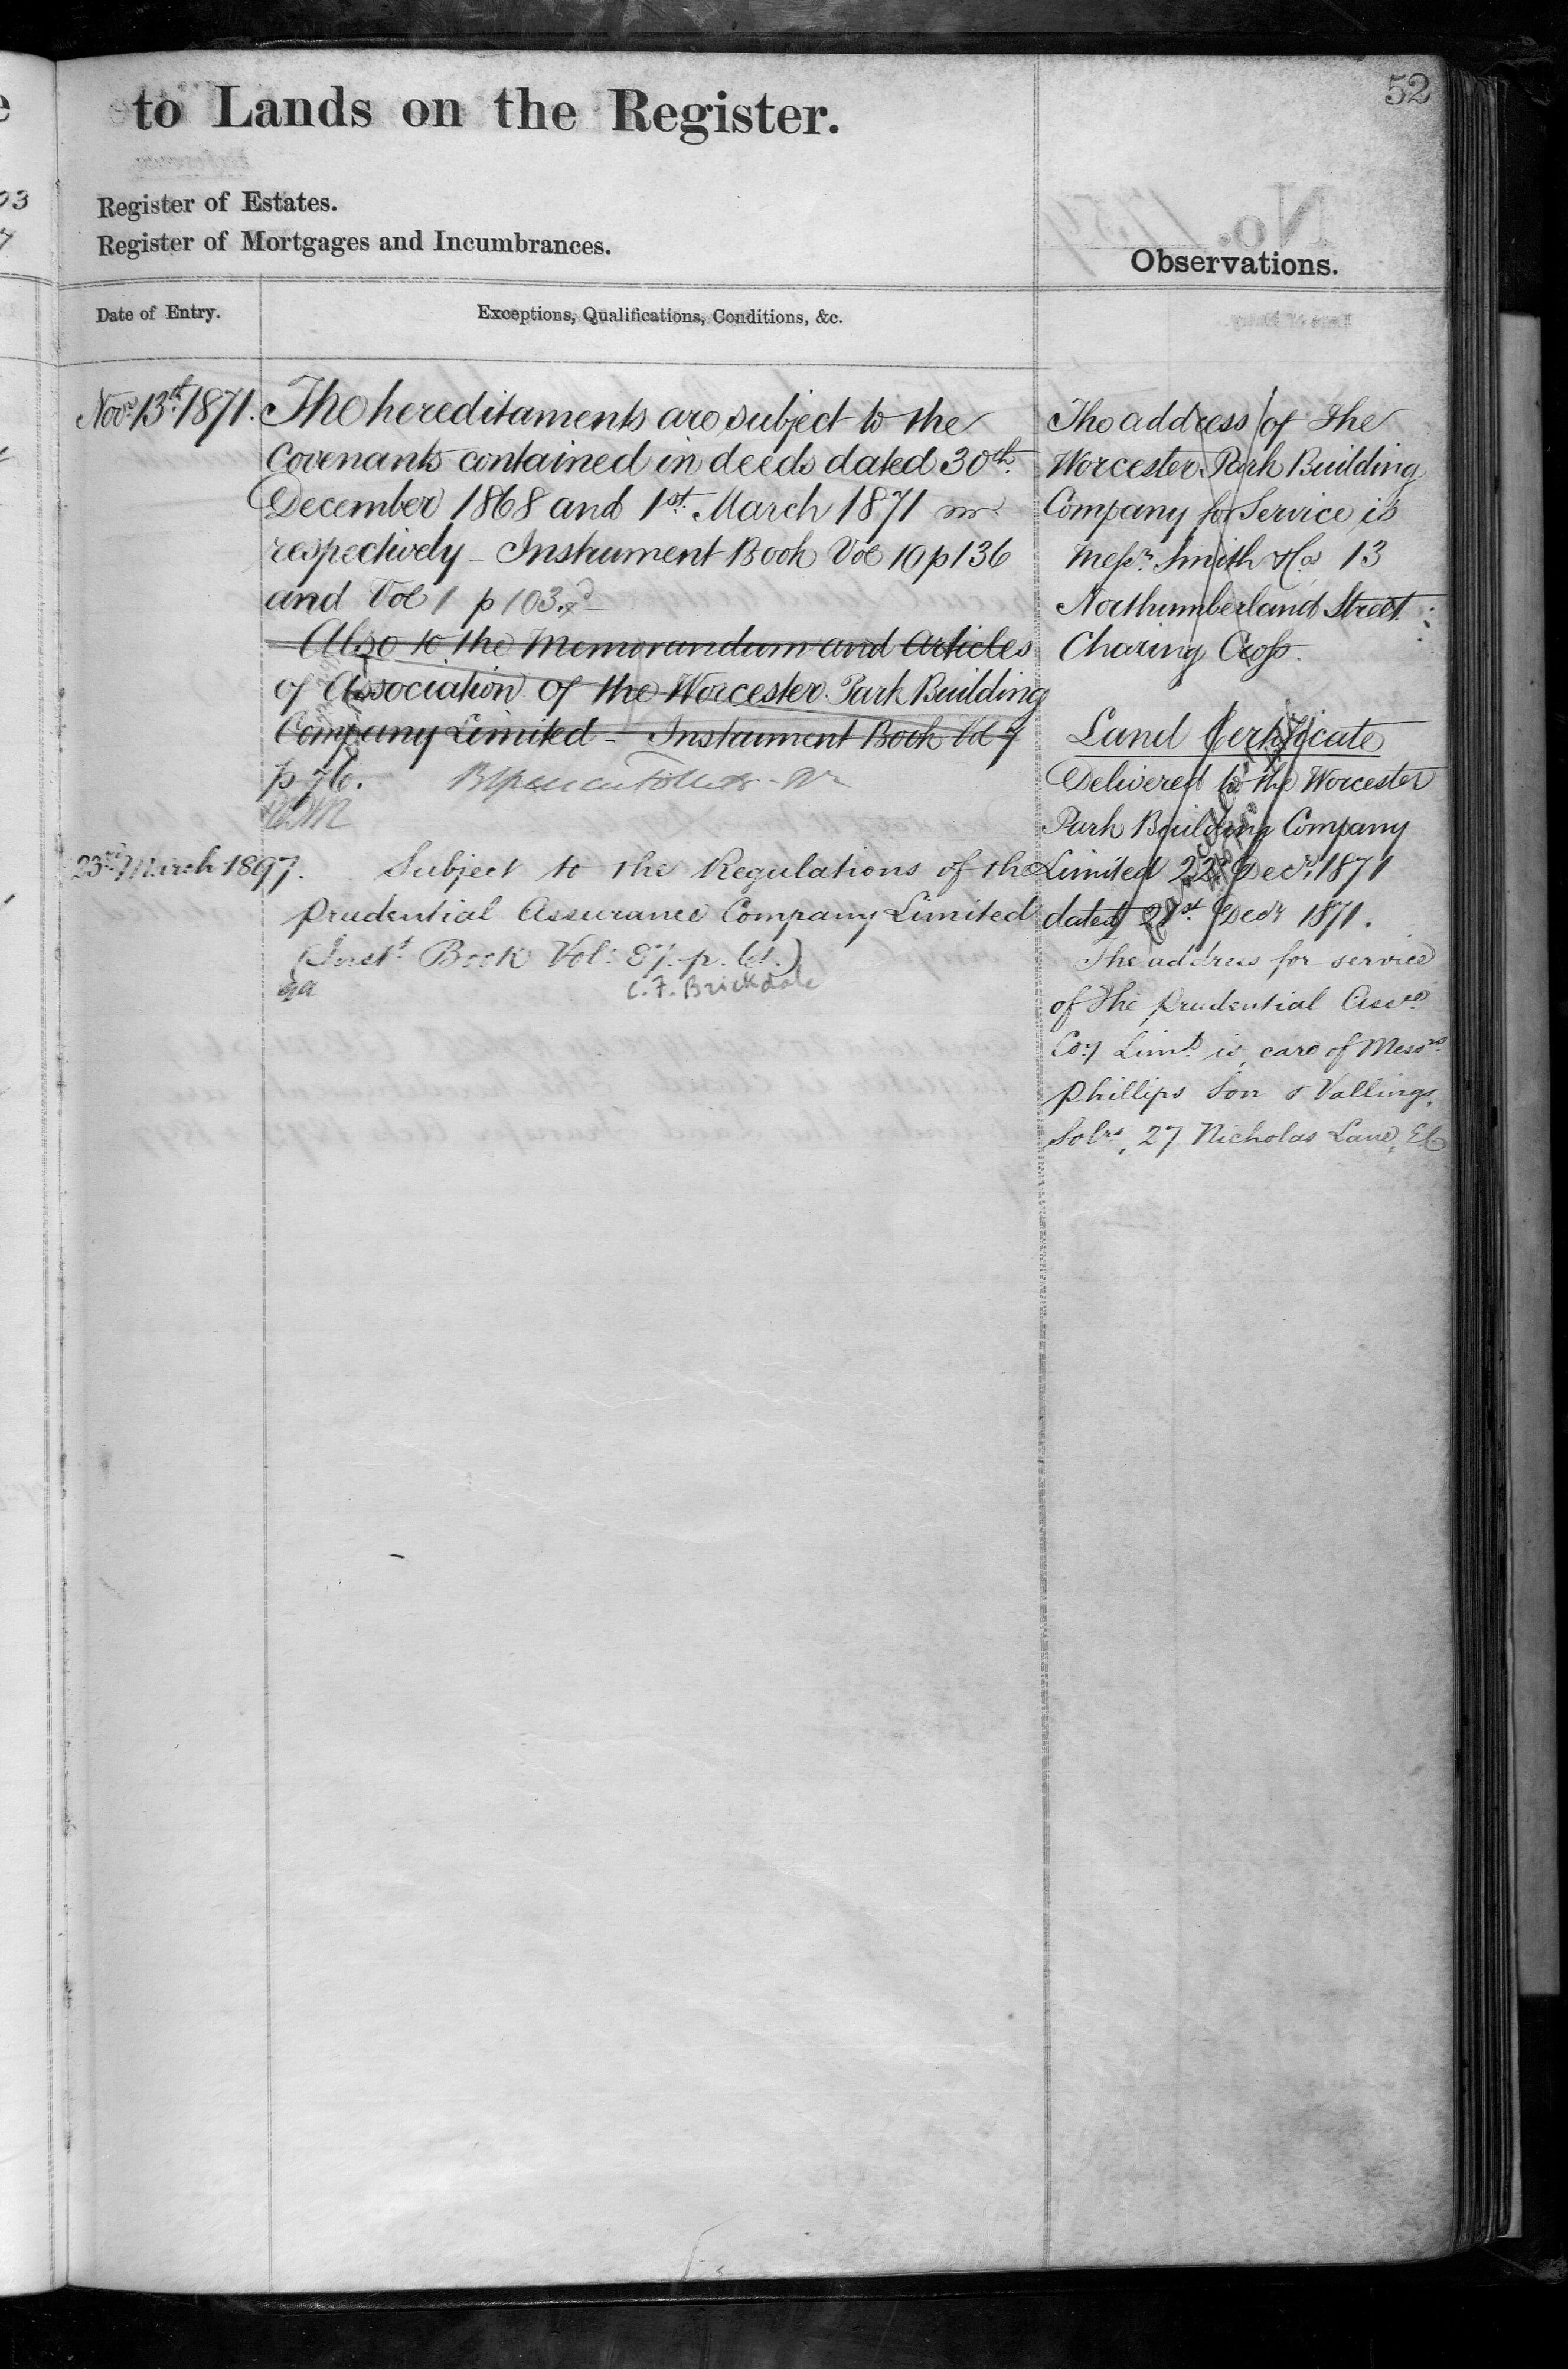 52
to Lands on the Register.
Register of Estates.
Register of Mortgages and Incumbrances.
Observations.
Date of Entry.
Exceptions, Qualifications, Conditions, &c.
Novr. 13th. 1871.
The hereditaments are subject to the
Covenants contained in deeds dated 30th.
December 1868 and 1st. March 1871
respectively – Instrument Book Vol 10 p 136
and Vol 1 p 103.
Also to the Memorandum and Articles
of Association of the Worcester Park Building
Company Limited – Instrument Book Vol 7
p 76.
23rd March 1897.
Subject to the Regulations of the
Prudential Assurance Company Limited
(Inst. Book Vol: 87. p. 61.)
C. F. Brickdale
The address of the
Worcester Park Building
Company for Service is
Messrs. Smith & Co. 13
Northumberland Street
Charing Cross.
Land Certificate
Delivered to the Worcester
Park Building Company
Limited 22 Decr. 1871
dated 21st. Decr 1871.
The address for service
of the Prudential Assce
Coy Limd. is care of Messrs.
Phillips Son & Vallings,
Solrs, 27 Nicholas Lane, E.C